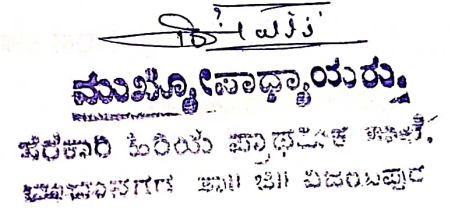 ಮುಖ್ಯೋಪಾಧ್ಯಾಯರು
ಸರಕಾರಿ ಹಿರಿಯ ಪ್ರಾಥಮಿಕ ಶಾಲೆ,
ತಾ॥ ಜಿ॥ ವಿಜಯಪುರ